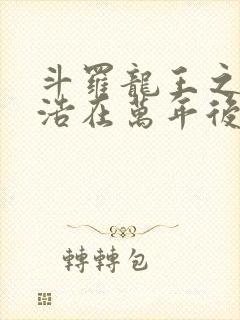 斗羅龍王之
浩在萬年後
轉轉包